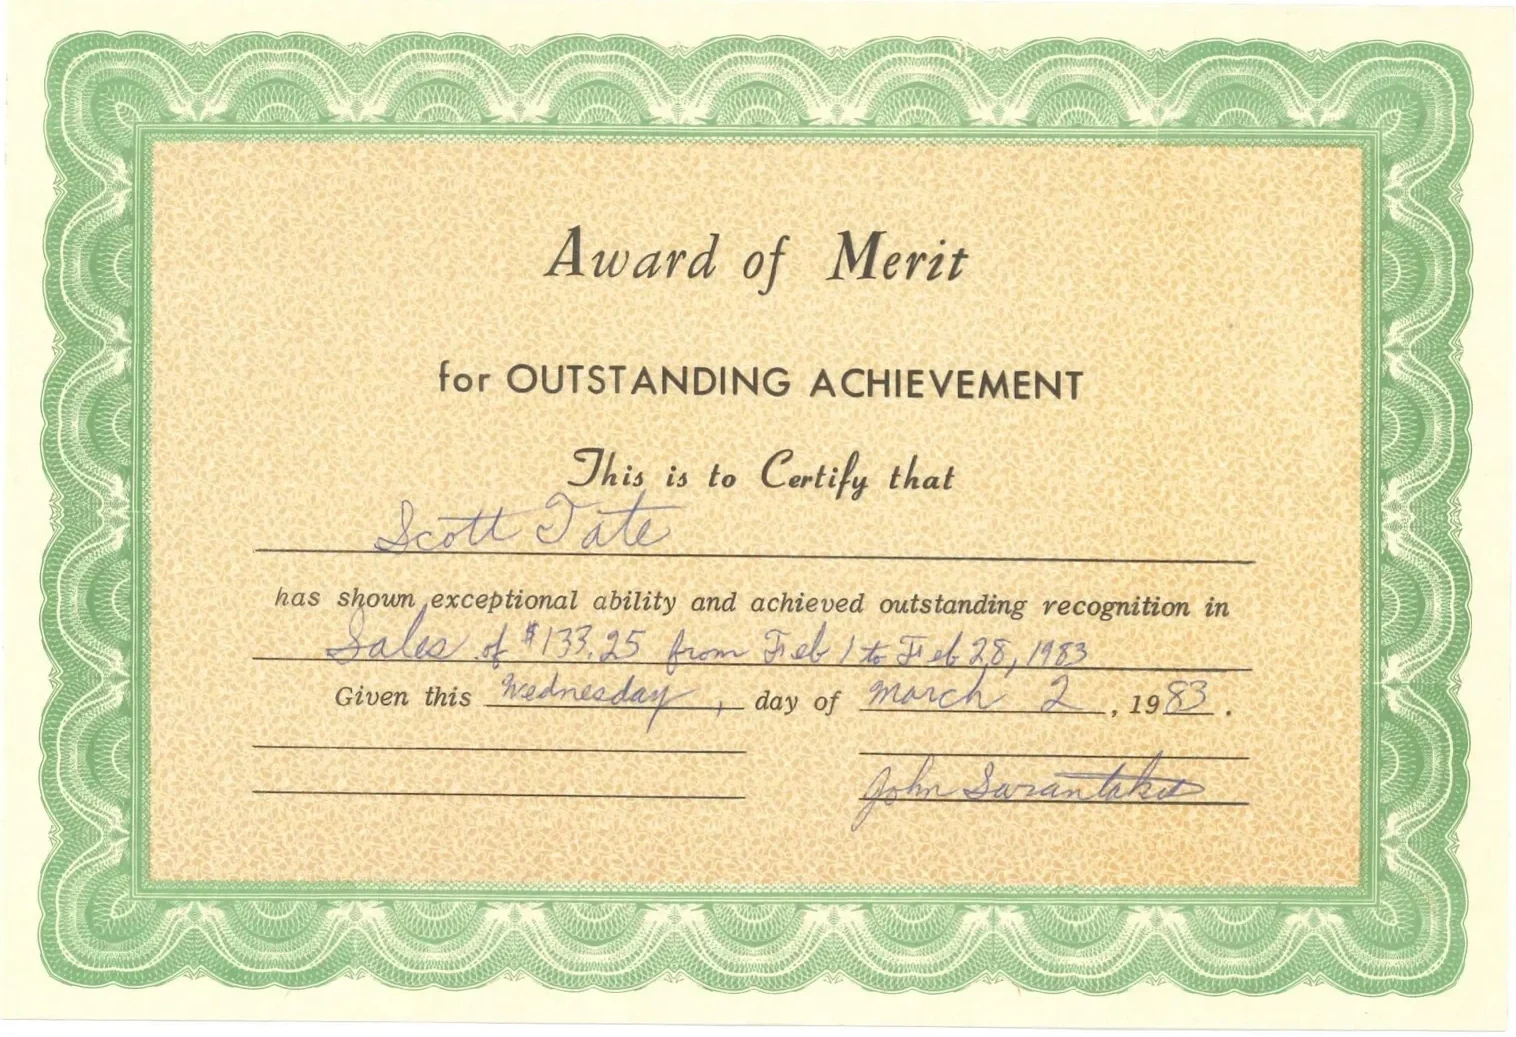 Award of Merit
for OUTSTANDING ACHIEVEMENT
This is to Certify that
Scott Tate
has shown exceptional ability and achieved outstanding recognition in
Sales of $133.25 from Feb 1 to Feb 28, 1983
Given this Wednesday, day of March 2, 1983.
John